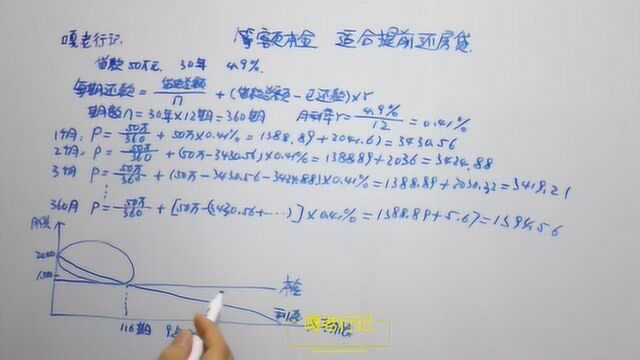 嘎老行记. 等额本金 适合提前还房贷.
贷款50万元 30年 4.9%.
每期还款=贷款总额/n+(贷款总额-已还款)×r
期数n=30年×12期=360期 月利率r=4.9%/12=0.41%
1个月: P=50万/360+50万×0.41%=1388.89+2041.67=3430.56
2个月: P=50万/360+(50万-3430.56)×0.41%=1388.89+2036=3424.88
3个月 P=50万/360+(50万-3430.56-3424.88)×0.41%=1388.89+2030.32=3419.21
⋮
360月 P=50万/360+[50万-(3430.56+…)]×0.41%=1388.89+5.67=1394.56
月供
2000
1500
本金
利息
116期
嘎老行记